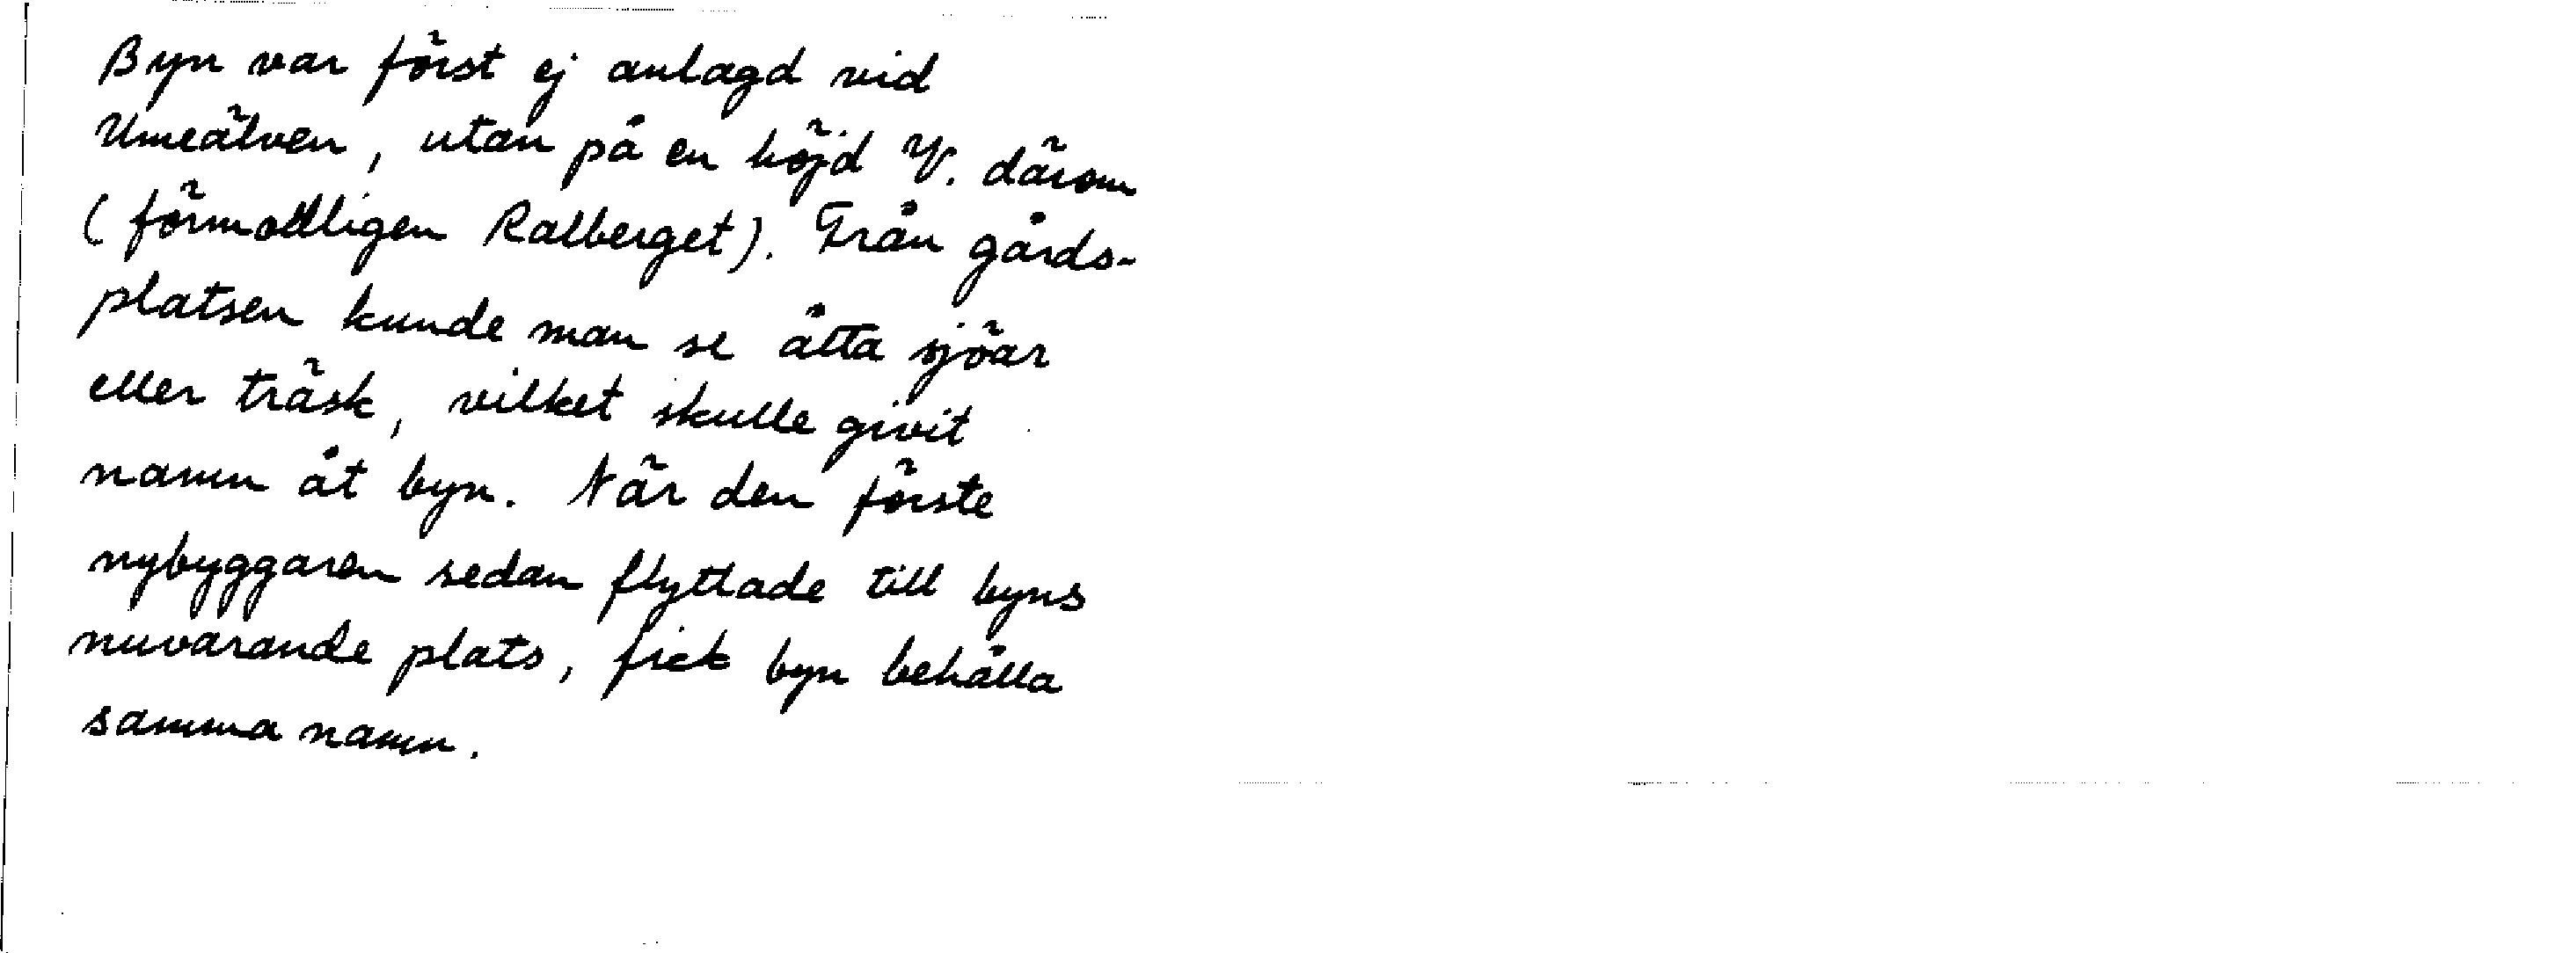 Byn var först ej anlagd vid
Umeälven, utan på en höjd V. därom
(förmodligen Ralberget). Från gårds-
platsen kunde man se åtta sjöar
eller träsk, vilket skulle givit
namn åt byn. När den förste
nybyggaren sedan flyttade till byns
nuvarande plats, fick byn behålla
samma namn.